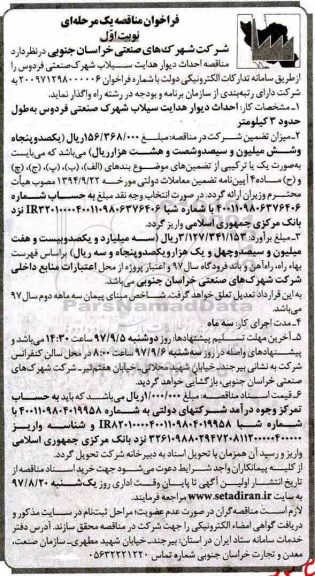 فراخوان مناقصه یک مرحله‌ای
نوبت اول
شرکت شهرک‌های صنعتی خراسان جنوبی درنظردارد
مناقصه احداث دیوار هدایت سیـلاب شهرک‌صنعتی فردوس را
ازطریق سامانه تدارکات الکترونیکی دولت با شماره فراخوان ۲۰۰۹۷۱۲۹۸۰۰۰۰۰۶ به
شرکت دارای رتبه‌بندی از سازمان برنامه و بودجه در رشته راه واگذار نماید.
۱ـ مشخصات کار: احداث دیوار هدایت سیلاب شهرک صنعتی فردوس به‌طول
حدود ۳ کیلومتر
۲ـ میزان تضمین شـرکت در مناقصه: مبلـغ ۱۵۶/۳۶۸/۰۰۰ریال (یکصدوپنجاه
وشش میلیون و سیصدوشصت و هشت هزارریال) می‌باشد که می‌بایست
به‌صورت یک یا ترکیبی از تضمین‌های موضوع بندهای (الف)، (ب)، (پ)، (ج)، (چ)
و (ح) ماده۴ آیین‌نامه تضمین معاملات دولتی مورخـه ۱۳۹۴/۹/۲۲ مصوب هیأت
محترم وزیران ارائه گردد. در صورت انتخاب وجه نقد مبلغ به حساب شـماره
۴۰۰۱۱۰۹۸۰۶۳۷۶۴۰۶ با شـماره شبا IR۳۲۰۱۰۰۰۰۴۰۰۱۱۰۹۸۰۶۳۷۶۴۰۶ نزد
بانک مرکزی جمهوری اسلامی واریز گردد.
۳ـ مبلغ برآورد: ۳/۱۲۷/۳۴۱/۱۵۳ریال (سه میلیارد و یکصدوبیست و هفت
میلیون و سیصدوچهل و یک هزارویکصدوپنجاه و سه ریال) براساس فهرست
بهاء راه، راه‌آهن و باند فرودگاه سال ۹۷ و اعتبار پروژه از محل اعتبارات منابع داخلی
شرکت شهرک‌های صنعتی خراسان جنوبی می‌باشد.
به این قرارداد تعدیل تعلق خواهد گرفت. شاخص مبنای پیمان سه ماهه دوم سال ۹۷
می‌باشد.
۴ـ مدت اجرای کار: سه ماه
۵ـ آخرین مهلت تسلیم پیشنهادها: روز دوشنبه ۹۷/۹/۵ ساعت ۱۴:۳۰ می‌باشد و
پیشنهادهای واصله در روز سه‌شنبه ۹۷/۹/۶ ساعت ۸:۰۰ در محل سالن کنفرانس
شرکت به نشانی بیرجند ـ خیابان شهید محلاتی ـ خیابان هفتم‌تیر ـ شرکت شهرک‌های
صنعتی خراسان جنوبی، بازگشایی خواهد گردید.
۶ـ قیمت اسناد مناقصه: مبلغ ۱/۰۰۰/۰۰۰ریال می‌باشد که باید به حساب
تمرکز وجوه درآمد شـرکتهای دولتی به شماره ۴۰۰۱۱۰۹۸۰۴۰۱۹۹۵۸ با
شماره شبا IR۸۲۰۱۰۰۰۰۴۰۰۱۱۰۹۸۰۴۰۱۹۹۵۸ و شناسه واریـز
نزد بانک مرکزی جمهوری اسلامی
واریز و رسید آن همزمان با تحویل اسناد به دبیرخانه شرکت تحویل گردد.
از کلیـه پیمانکاران واجد شـرایط دعوت می‌شود جهت خرید اسناد مناقصه از
تاریخ انتشار اولین آگهی تا پایان وقت اداری روز یک‌شنبه ۹۷/۸/۲۰
به سایت www.setadiran.ir مراجعه فرمایند.
لازم است مناقصه‌گران در صورت عدم عضویت؛ مراحل ثبت‌نام در سایت مذکور و
دریافت گواهی امضاء الکترونیکی را جهت شرکت در مناقصه محقق سازند. آدرس دفتر
خدمات سامانه ستاد ایران در استان: بیرجند ـ خیابان شهید مطهری ـ سازمان صنعت،
معدن و تجارت خراسان جنوبی شماره تماس: ۰۵۶۳۲۲۲۱۲۲۰